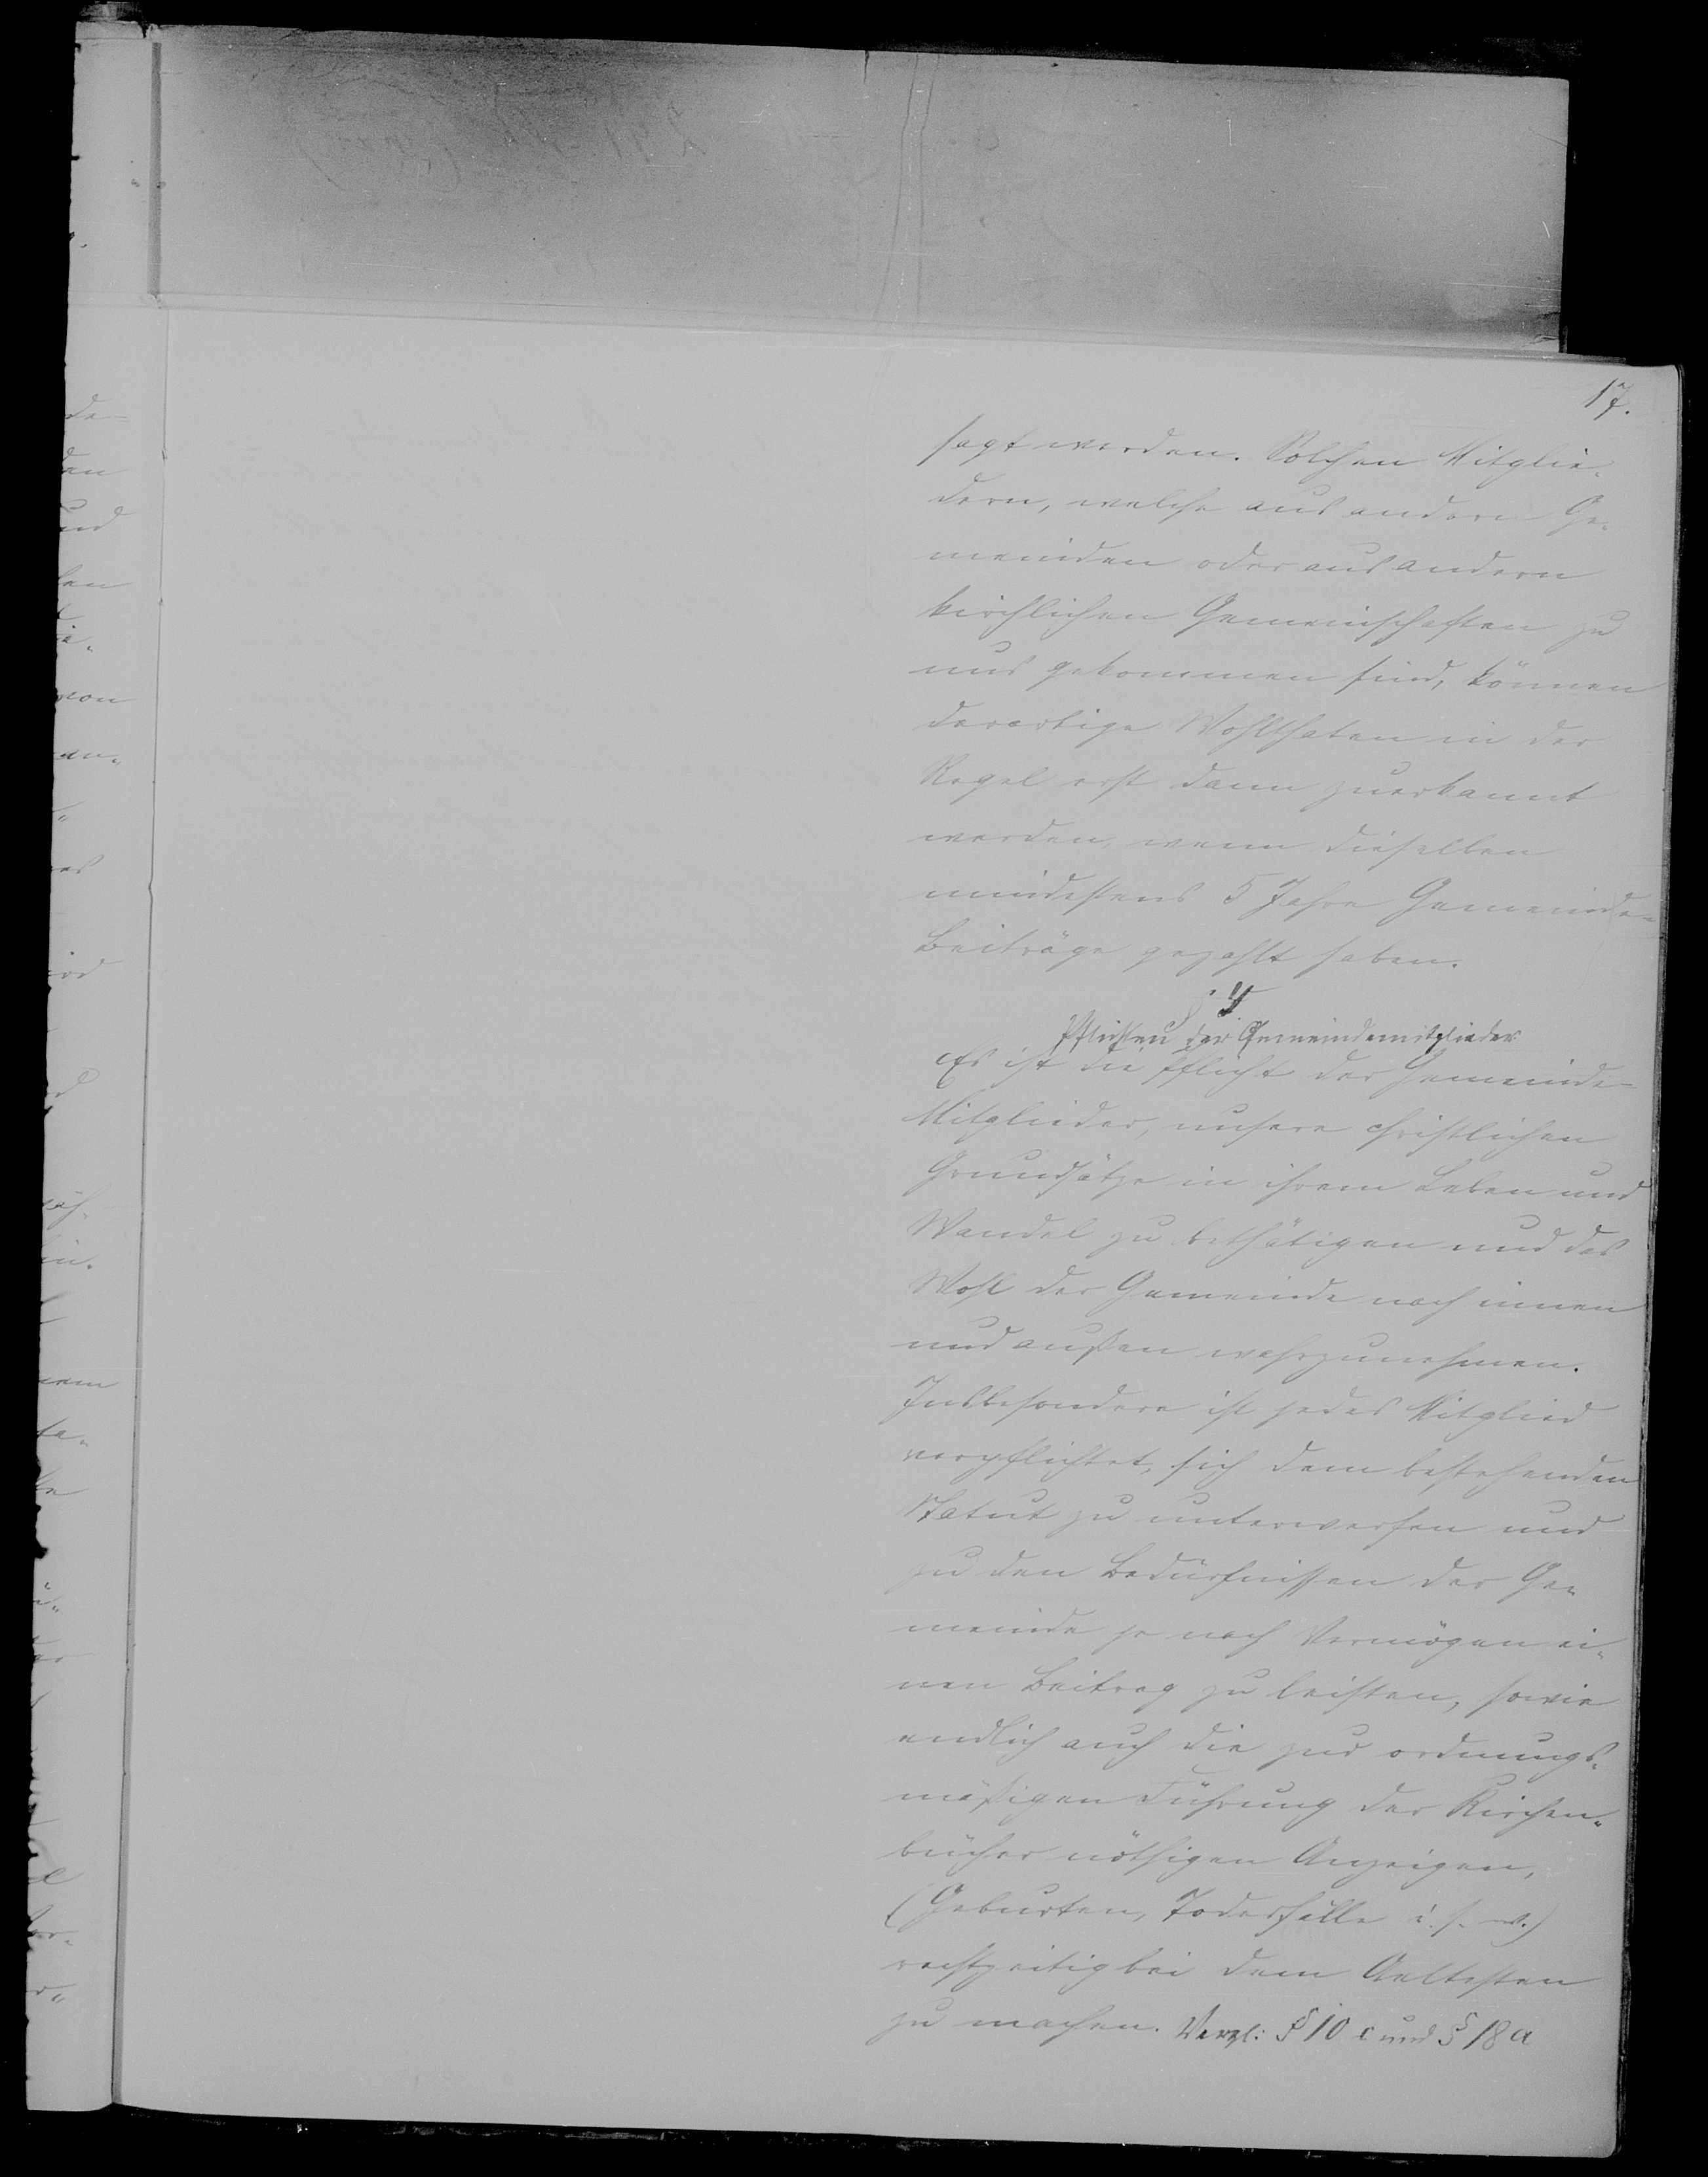 17.
sagt werden. Solchen Mitglie-
dern, welche aus andern Ge-
meinden oder aus andern
kirchlichen Gemeinschaften zu
uns gekommen sind, können
derartige Wohlthaten in der
Regel erst dann zuerkannt
werden, wenn dieselben
mindestens 5 Jahre Gemeinde-
Beiträge gezahlt haben.
§
Pflichten der Gemeindemitglieder
Es ist die Pflicht der Gemeinde-
Mitglieder, unsere christlichen
Grundsätze in ihrem Leben und
Wandel zu bethätigen und das
Wohl der Gemeinde nach innen
und außen wahrzunehmen.
Insbesondere ist jedes Mitglied
verpflichtet, sich dem bestehenden
Statut zu unterwerfen und
zu den Bedürfnissen der Ge-
meinde je nach Vermögen ei-
nen Beitrag zu leisten, sowie
endlich auch die zur ordnungs-
mäßigen Führung der Kirchen-
bücher nöthigen Anzeigen,
(Geburten, Todesfälle u. s. w.)
rechtzeitig bei dem Aeltesten
zu machen. Vergl: § 10 c und § 18 a